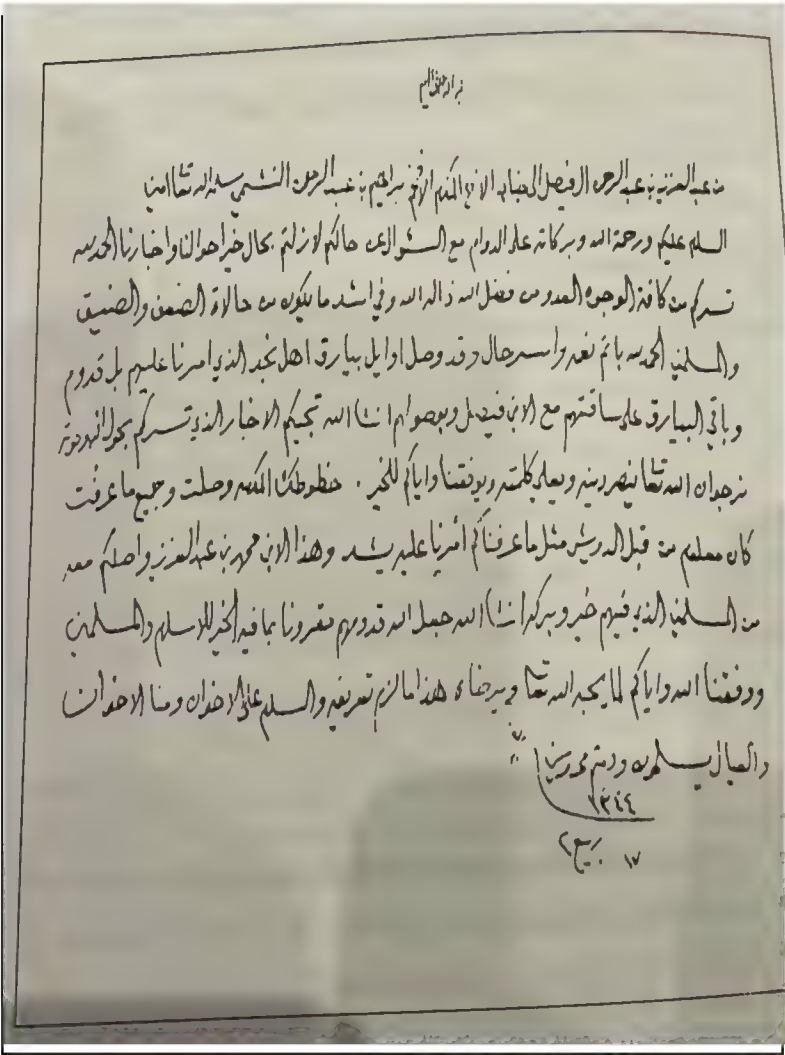 بسم الله الرحمن الرحيم
من عبد العزيز بن عبد الرحمن الفيصل الى جناب الاخ المكرم الافخم براهيم بن عبد الرحمن النشمي سلمه الله تعالى امين
السلام عليكم ورحمة الله وبركاته على الدوام مع السؤال عن حالكم لازلتم بحال خير احوالنا واخبارنا الحمد لله
تسركم من كافة الوجوه العدو من فضل الله ذاله الله وفي اشد ما يكون من حالات الضعف والضيق
والمسلمين الحمد لله باتم نعمه واسر حال وقد وصل اوايل بيارق اهل نجد الذي امرنا عليهم بل قدوم
وباقي البيارق على ساقتهم مع الابن فيصل وبوصولهم انشاء الله تجيكم الاخبار الذي تسركم بحول الله وقوته
نرجوا ان الله تعالى ينصر دينه ويعلي كلمته ويوفقنا واياكم للخير . خطوطك المكرمه وصلت وجميع ما عرفت
كان معلوم من قبل الدويش مثل ما عرفناكم امرنا عليه يشد وهذا الابن محمد بن عبد العزيز واصلكم معه
من المسلمين الذي فيهم خير وبركه انشاء الله جعل الله قدومهم مقرونا بما فيه الخير للاسلام والمسلمين
ووفقنا الله واياكم لما يحبه الله تعالى ويرضاه هذا ما لزم تعريفه والسلام على الاخوان ومنا الاخوان
والعيال يسلمون ودمتم محروسين
١٣٤٤
١٧ ربيع ٢